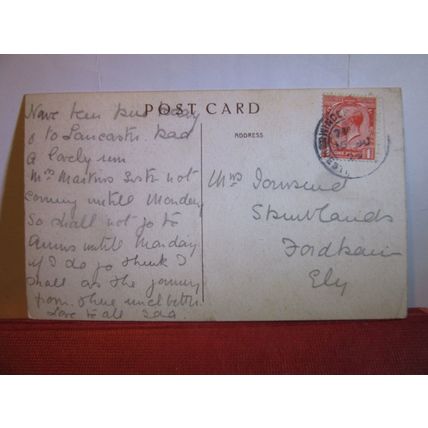 POST CARD
ADDRESS
Have been
& to Lancaster had
a lovely run
Mrs Martins Sister not
coming untill Monday
So shall not go to
Annies untill Monday
if I do go think I
shall as the journey
from there
Love to all
Mrs Townsend
Shrublands
Fordham
Ely